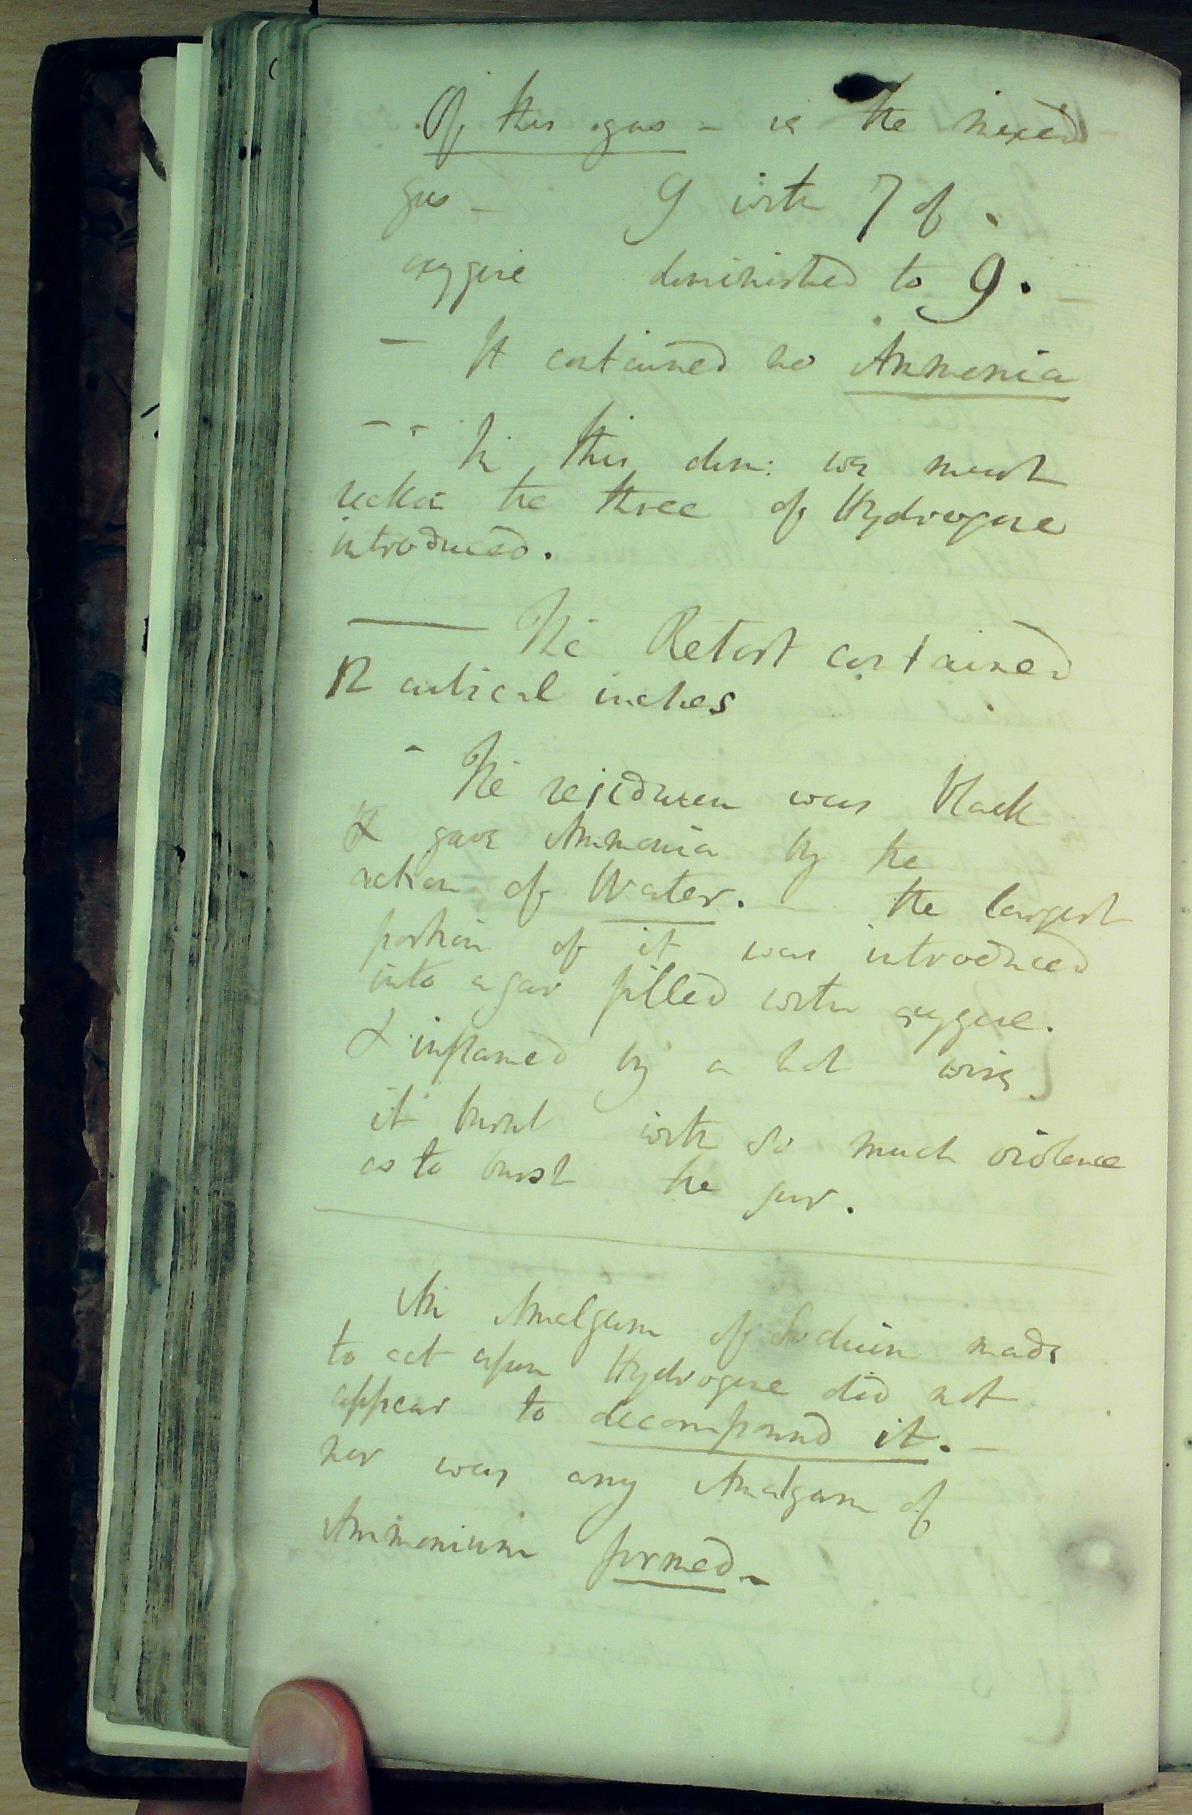 Of this gas - ie the mixed
gas - 9 with 7 of.
oxygene diminished to 9.
- It contained no Ammonia
- - In this dim: we must
reckon the three of Hydrogene
introduced.
— The Retort contained
12 cubical inches
- The residuum was black
& gave Ammonia by the
action of Water. - the largest
portion of it was introduced
into a jar filled with oxygene.
& inflamed by a hot wire
it burnt with so much violence
as to burst the jar.
An Amalgam of Sodium made
to act upon Hydrogene did not
appear to decompound it. -
nor was any Amalgam of
Ammonium formed -